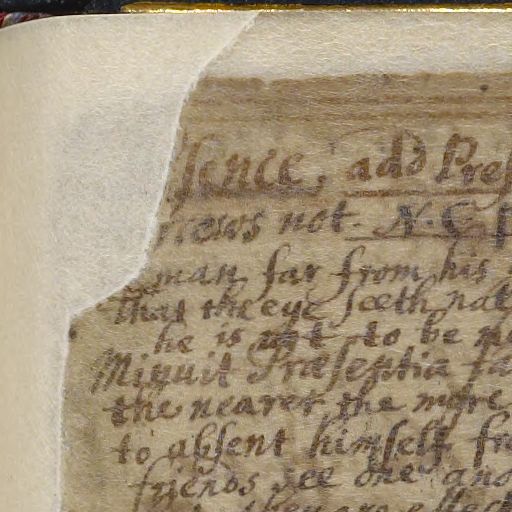 sence, add Pres
rrows not. N. C. p
man far from his
that the eye seeth nat
he is not to be ne
Minuit Præsentia fa
the nearer the more
to absent himself fr
friends see one ano
they are effect